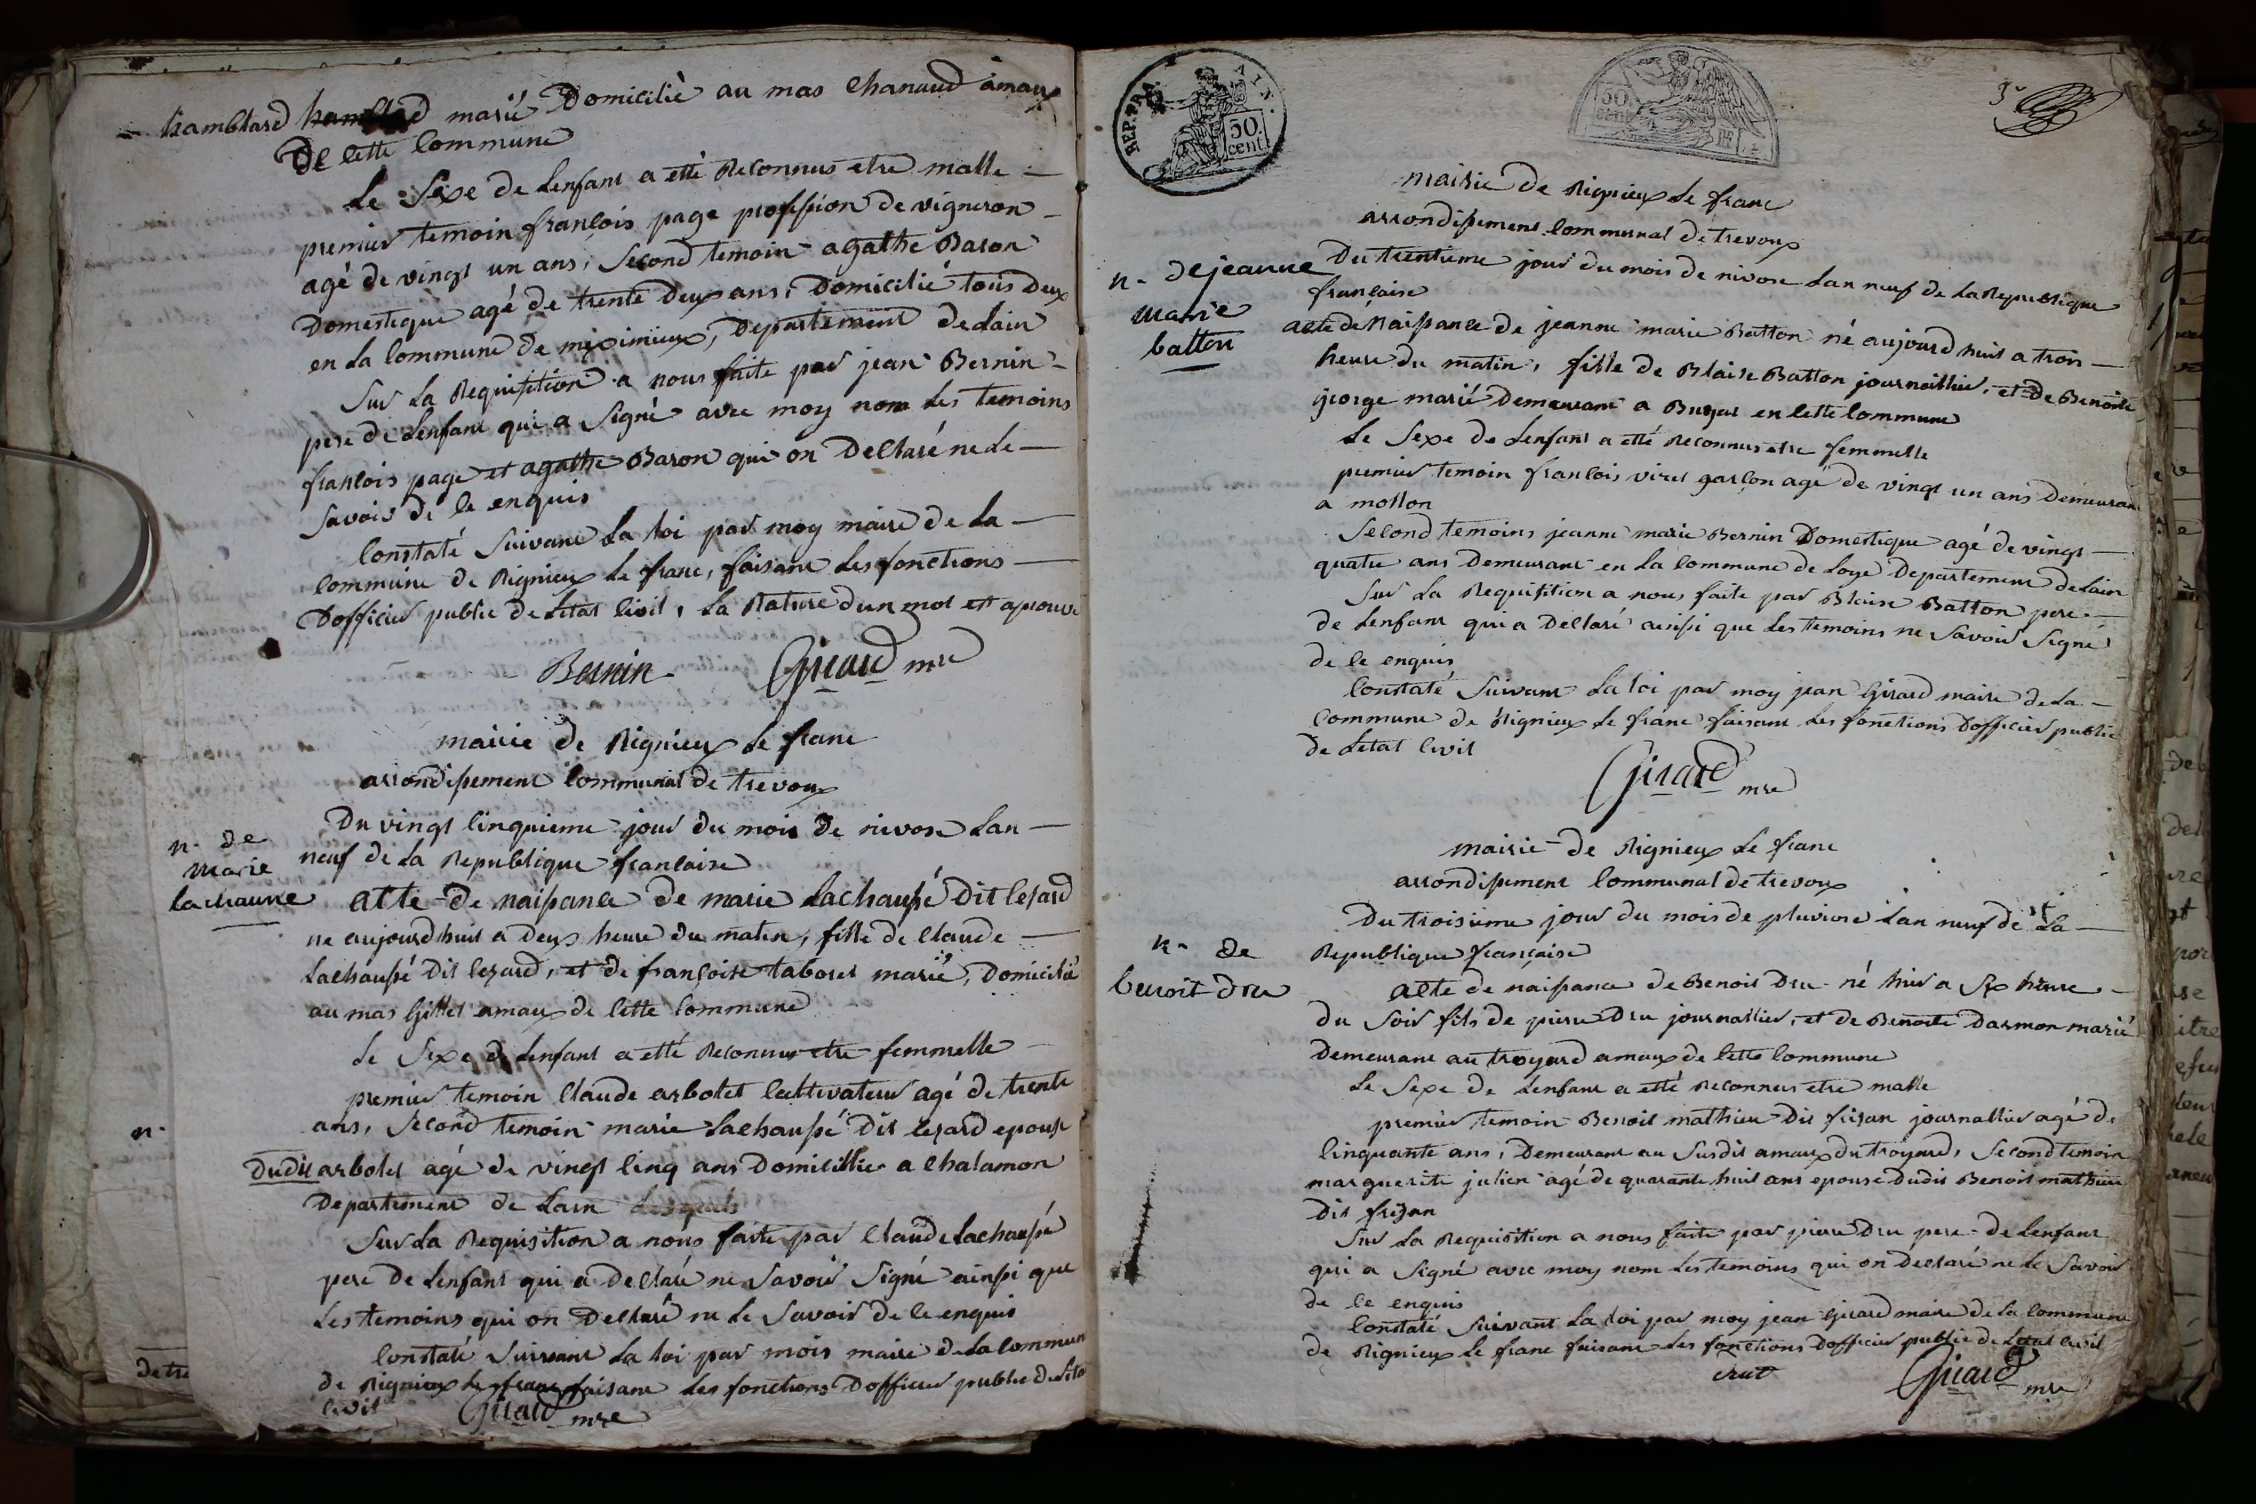 hamblard marié Domicilié au mas Chanaud amaux
De Cette Commune
Le Sexe De Lenfant a etté Reconnus etre malle
premier temoin francois page profession de vigneron
agé de vingt un ans, Second temoin agathe Baron
Domestique agé de trente Deux ans, Domicilié tous Deux
en La Commune De meximieux, Departement De Lain
Sur La Requisition a nous faite par jean Bernin
pere De Lenfant qui a Signé avec moy nom Les temoins
francois page et agathe Baron qui on Declaré ne Le
Savoir De Ce enquis
Constaté Suivant La Loi par moy maire De La
Commune De Rignieux Le franc, faisant Les fonctions
Dofficier public De Letat Civil, La Rature Dun mot est aprouve
Bernin Girard mre
mairie De Rignieux Le franc
arrondissement Communal De trevoux
n. De
Marie
Lachausse
Du vingt Cinquieme jour Du mois De nivose Lan
neuf De La Republique francaise
acte De naissance De marie Lachaussé Dit Lesard
ne aujourdhuit a Deux heure Du matin, fille De Claude
Lachaussé Dit Lezard, et De françoise taboret marié, Domicilié
au mas Gillet amaux De Cette Commune
Le Sexe De Lenfant a etté Reconnus etre femmelle
premier temoin Claude arbolet Cultivateur agé De trente
ans, Second temoin marie Lachaussé Dit Lesard epouse
Dudit arbolet agé De vingt Cinq ans Domicillie a Chalamon
Departement De Lain
Sur La Requisition a nous faite par Claude Lachaussé
pere De Lenfant qui a Declaré ne Savoir Signé ainssi que
Les temoins qui on Declaré ne Le Savoir De Ce enquis
Constaté Suivant La Loi par mois maire De La Commun
De Rignieux Le franc faisant Les fonctions Dofficier public De Leta
Civil Girard mre
REP. FRA. AIN.
50
cent
50
3e
mairie De Rignieux Le franc
arrondissement Communal De trevoux
n. De jeanne
Marie
Batton
Du trentieme jour Du mois De nivose Lan neuf De La Republique
française
acte De Naissance De jeanne marie Batton né aujourdhuit a trois
heure Du matin, fille De Blaise Batton journaillier, et De Benoite
george marié Demeurant a Buyat en Cette Commune
Le Sexe De Lenfant a etté Reconnus etre femmelle
premier temoin francois viret garçon agé De vingt un ans Demeurant
a mollon
Second temoins jeanne marie Bernin Domestique agé De vingt
quatre ans Demeurant en La Commune De Loye Departement De Lain
Sur La Requisition a nous faite par Blaise Batton pere
De Lenfant qui a Declaré ainssi que Les temoins ne Savoir Signé
De Ce enquis
Constaté Suivant La Loi par moy jean Girard maire De La
Commune De Rignieux Le franc faisant Les fonctions Dofficier public
De Letat Civil
Girard mre
mairie De Rignieux Le franc
arrondissement Communal De trevoux
n. De
benoit Dru
Du troisieme jour Du mois De pluviose Lan neuf De La
Republique française
acte De naissance De Benoit Dru né hier a Six heure
Du Soir fils De pierre Dru journallier, et De Benoite Darmon marié
Demeurant au troyard amaux De Cette Commune
Le Sexe De Lenfant a etté Reconnus etre malle
premier temoin Benoit mathieu Dit frisan journallier agé De
Cinquante ans, Demeurant au Susdit amaux Du troyard, Second temoin
marguerite julien agé De quarante huit ans epouse Dudit Benoit mathieu
Dit frizan
Sur La Requisition a nous faite par pierre Dru pere De Lenfant
qui a Signé avec moy nom Les temoins qui on Déclaré ne Le Savoir
De Ce enquis
Constaté Suivant La Loi par moy jean Girard maire De La Commune
De Rignieux Le franc faisant Les fonctions Dofficier public De Letat Civil
Girard mre